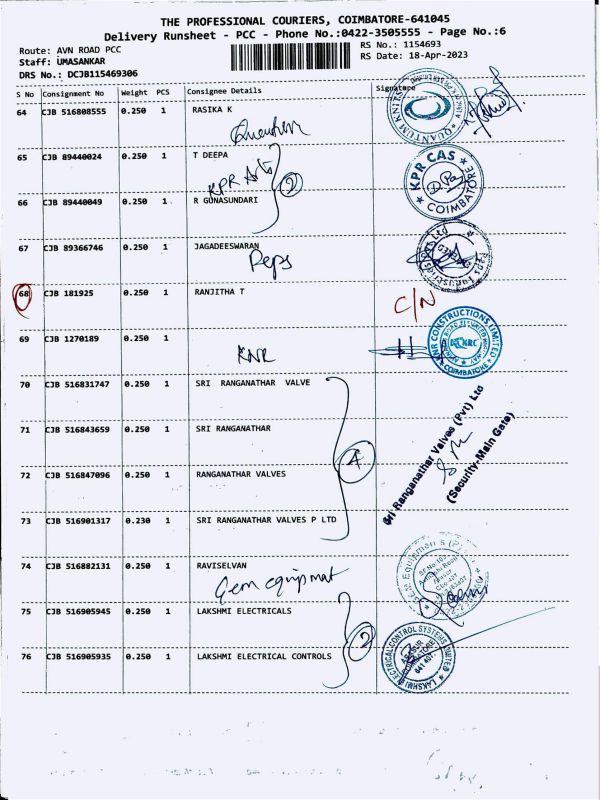 THE PROFESSIONAL COURIERS, COIMBATORE-641045
Delivery Runsheet - PCC - Phone No.:0422-3505555 - Page No.:6
Route: AVN ROAD PCC
RS No.: 1154693
Staff: UMASANKAR
RS Date: 18-Apr-2023
DRS No.: DCJB115469306
S No Consignment No Weight PCS Consignee Details Signature
64 CJB 516808555 0.250 1 RASIKA K
Quantum
QUANTUM KNITS
65 CJB 89440024 0.250 1 T DEEPA
KPR
2
KPR CAS
COIMBATORE
66 CJB 89440049 0.250 1 R GUNASUNDARI
67 CJB 89366746 0.250 1 JAGADEESWARAN
Peps
68 CJB 181925 0.250 1 RANJITHA T
C/N
69 CJB 1270189 0.250 1
KNR
KNR CONSTRUCTIONS LIMITED
COIMBATORE
70 CJB 516831747 0.250 1 SRI RANGANATHAR VALVE
71 CJB 516843659 0.250 1 SRI RANGANATHAR
4
Sri Ranganathar Valves (Pvt) Ltd
(Security-Main Gate)
72 CJB 516847096 0.250 1 RANGANATHAR VALVES
73 CJB 516901317 0.230 1 SRI RANGANATHAR VALVES P LTD
74 CJB 516882131 0.250 1 RAVISELVAN
Gem equipmat
75 CJB 516905945 0.250 1 LAKSHMI ELECTRICALS
2
76 CJB 516905935 0.250 1 LAKSHMI ELECTRICAL CONTROLS
LAKSHMI ELECTRICAL CONTROL SYSTEMS LIMITED